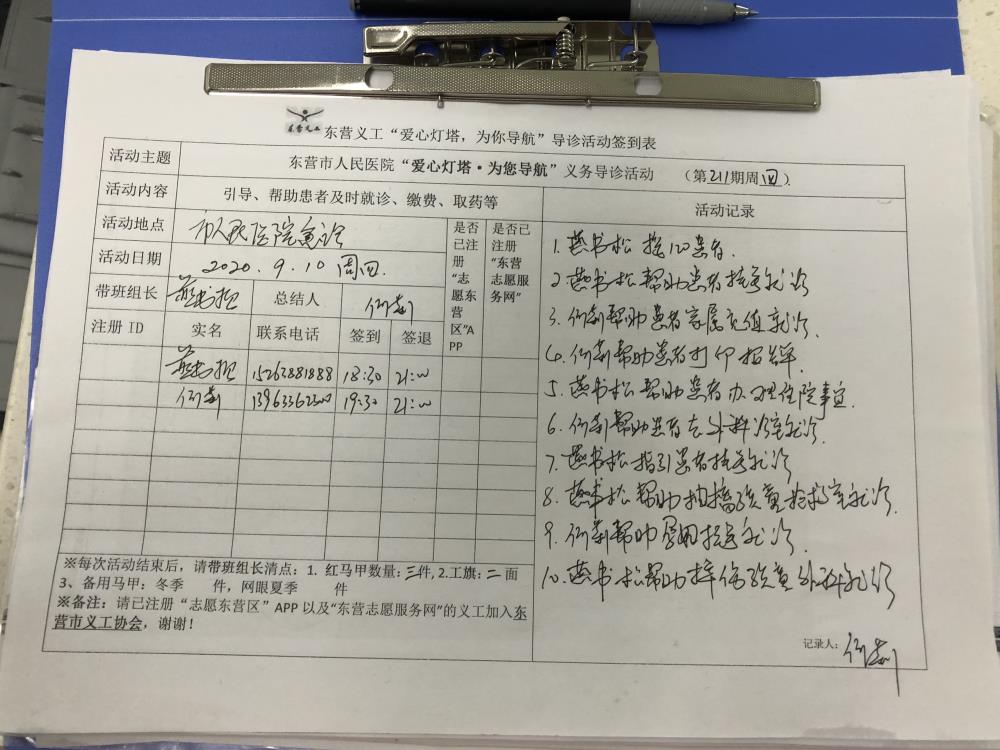 东营义工
东营义工“爱心灯塔，为你导航”导诊活动签到表
活动主题 东营市人民医院“爱心灯塔·为您导航”义务导诊活动 （第211期周四）
活动内容 引导、帮助患者及时就诊、缴费、取药等
活动地点 市人民医院急诊
活动日期 2020.9.10 周四
带班组长 燕书松 总结人 何莉
是否已注册“志愿东营区”APP
是否已注册“东营志愿服务网”
注册 ID 实名 联系电话 签到 签退
燕书松 15263881888 18:30 21:00
何莉 13963362300 19:30 21:00
※每次活动结束后，请带班组长清点：1. 红马甲数量：三件, 2.工旗：二面
3、备用马甲：冬季 件，网眼夏季 件
※备注：请已注册“志愿东营区”APP 以及“东营志愿服务网”的义工加入东
营市义工协会，谢谢！
活动记录
1. 燕书松 患者.
2. 燕书松帮助患者挂号就诊
3. 何莉帮助患者家属充值就诊.
4. 何莉帮助患者打印报告单
5. 燕书松帮助患者办理住院事宜.
6. 何莉帮助患者去外科诊室就诊.
7. 燕书松指引患者挂号就诊
8. 燕书松帮助抽搐孩童抢救室就诊.
9. 何莉帮助挂号就诊.
10. 燕书松帮助摔伤孩童外科就诊
记录人：何莉